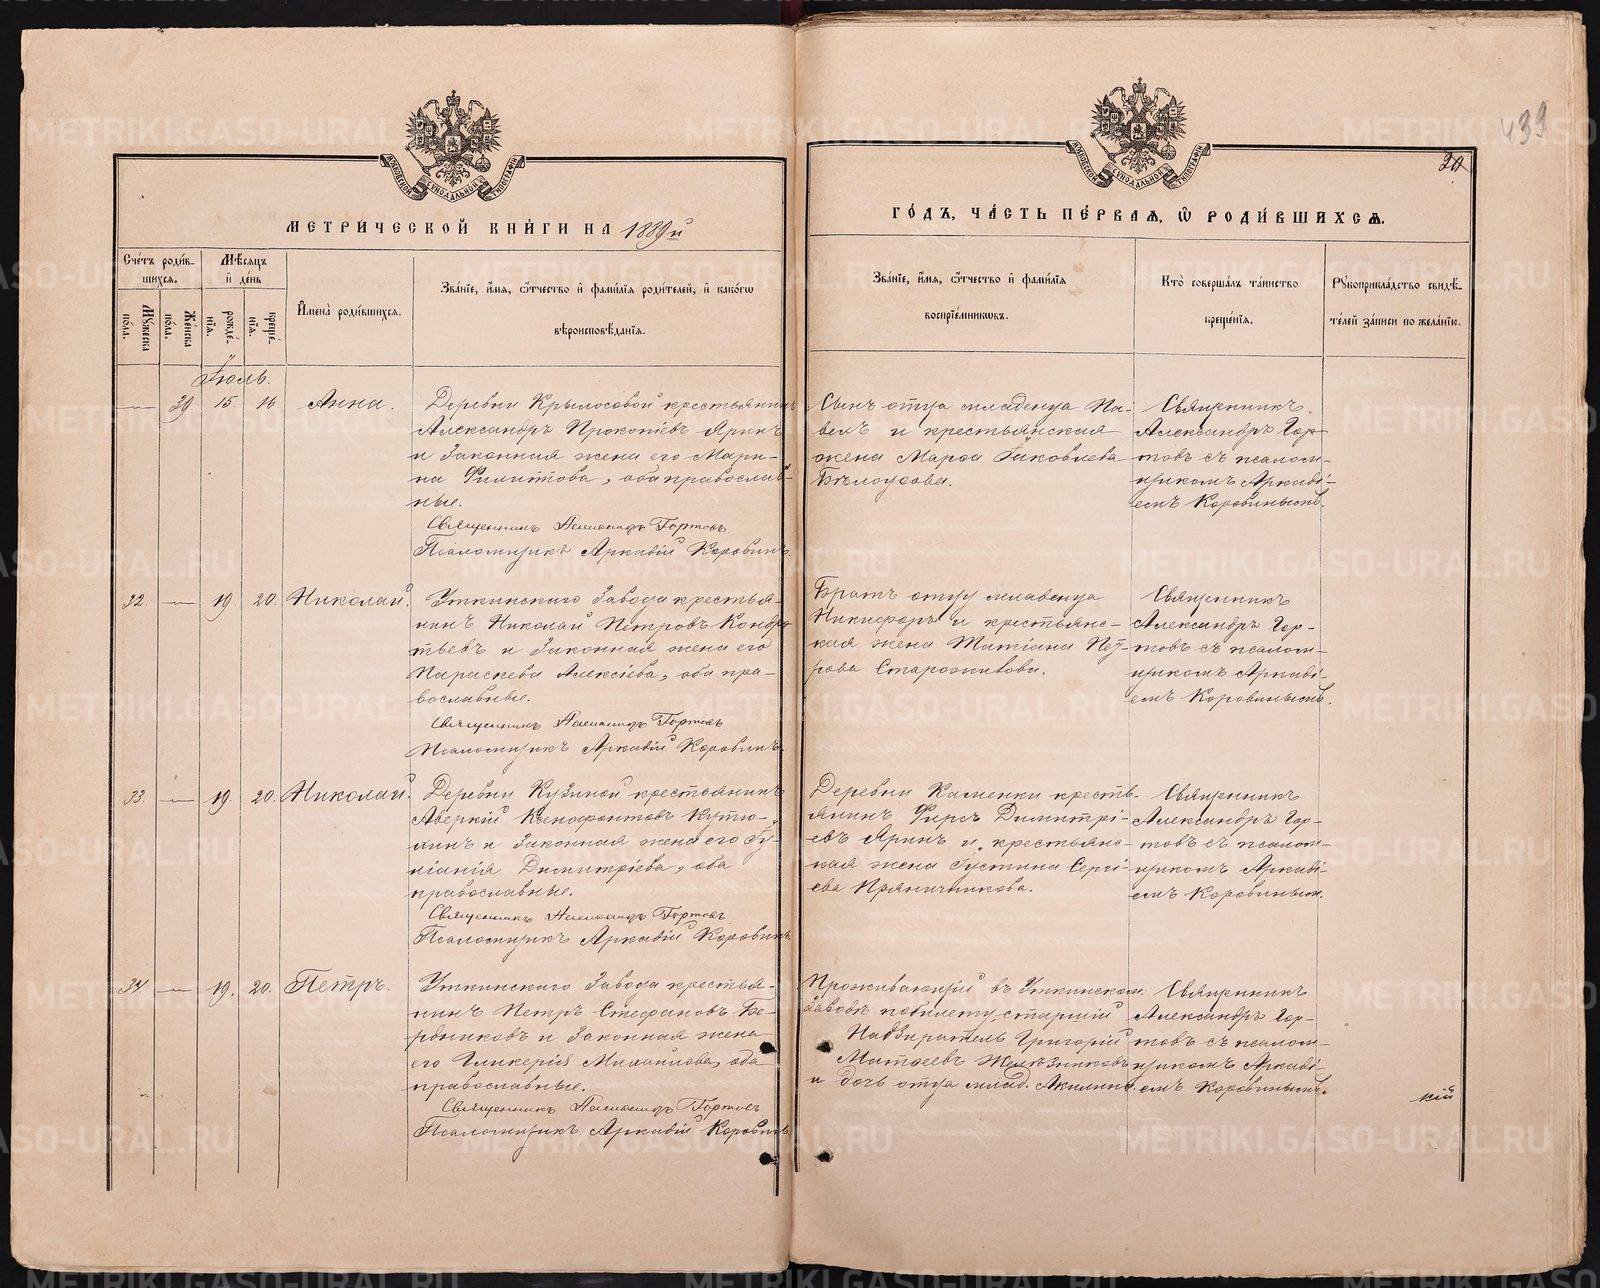 439
20
МОСКОВСКОЙ СѴНОДАЛЬНОЙ ТИПОГРАФІИ
МОСКОВСКОЙ СѴНОДАЛЬНОЙ ТИПОГРАФІИ
МЕТРИЧЕСКОЙ КНИГИ НА 1889й
ГОДЪ, ЧАСТЬ ПЕРВАЯ, Ѡ РОДИВШИХСЯ.
Счетъ родив-
шихся.
Мѣсяцъ
и день
Мужеска
пола.
Женска
пола.
рожде-
нія.
креще-
нія.
Имена родившихся.
Званіе, имя, отчество и фамилія родителей, и какогѡ
вѣроисповѣданія.
Званіе, имя, отчество и фамилія
воспріемниковъ.
Кто совершалъ таинство
крещенія.
Рукоприкладство свидѣ-
телей записи по желанію.
Іюль.
39 15. 16 Анна.
Деревни Крылосовой крестьянинъ
Александръ Прокопіевъ Яринъ
и законная жена его Мари-
на Филиппова, оба православ-
ные.
Священникъ Александръ Гортовъ
Псаломщикъ Аркадій Коровинъ.
Сынъ отца младенца Па-
велъ и крестьянская
жена Марѳа Іаковлева
Бѣлоусова.
Священникъ
Александръ Гор-
товъ съ псалом-
щикомъ Аркаді-
емъ Коровинымъ.
32. 19. 20. Николай.
Уткинскаго завода крестья-
нинъ Николай Петровъ Кондра
тьевъ и законная жена его
Параскева Алексіева, оба пра-
вославные.
Священникъ Александръ Гортовъ
Псаломщикъ Аркадій Коровинъ.
Братъ отцу младенца
Никифоръ и крестьянс-
кая жена Татіана Пет-
рова Старожилова.
Священникъ
Александръ Гор-
товъ съ псалом-
щикомъ Аркаді-
емъ Коровинымъ.
33. 19. 20. Николай.
Деревни Кузиной крестьянинъ
Аверкій Ксенофонтовъ Кутю-
хинъ и законная жена его Іу-
ліанія Димитріева, оба
православные.
Священникъ Александръ Гортовъ
Псаломщикъ Аркадій Коровинъ.
Деревни Каменки кресть-
янинъ Фирсъ Димитрі-
евъ Яринъ и крестьянс-
кая жена Іустина Сергі-
ева Пряничникова.
Священникъ
Александръ Гор-
товъ съ псалом-
щикомъ Аркаді-
емъ Коровинымъ.
34. 19. 20. Петръ.
Уткинскаго завода крестья-
нинъ Петръ Стефановъ Бе-
рдниковъ и законная жена
его Гликерія Михаилова, оба
православные.
Священникъ Александръ Гортовъ
Псаломщикъ Аркадій Коровинъ.
Проживающій въ Уткинском.
заводѣ по билету, старшій
Надзиратель Григорій
Матѳеевъ Желѣзниковъ
и дочь отца млад. Акилина.
Священникъ
Александръ Гор-
товъ съ псалом-
щикомъ Аркаді-
емъ Коровинымъ.
кій
METRIKI.GASO-URAL.RU